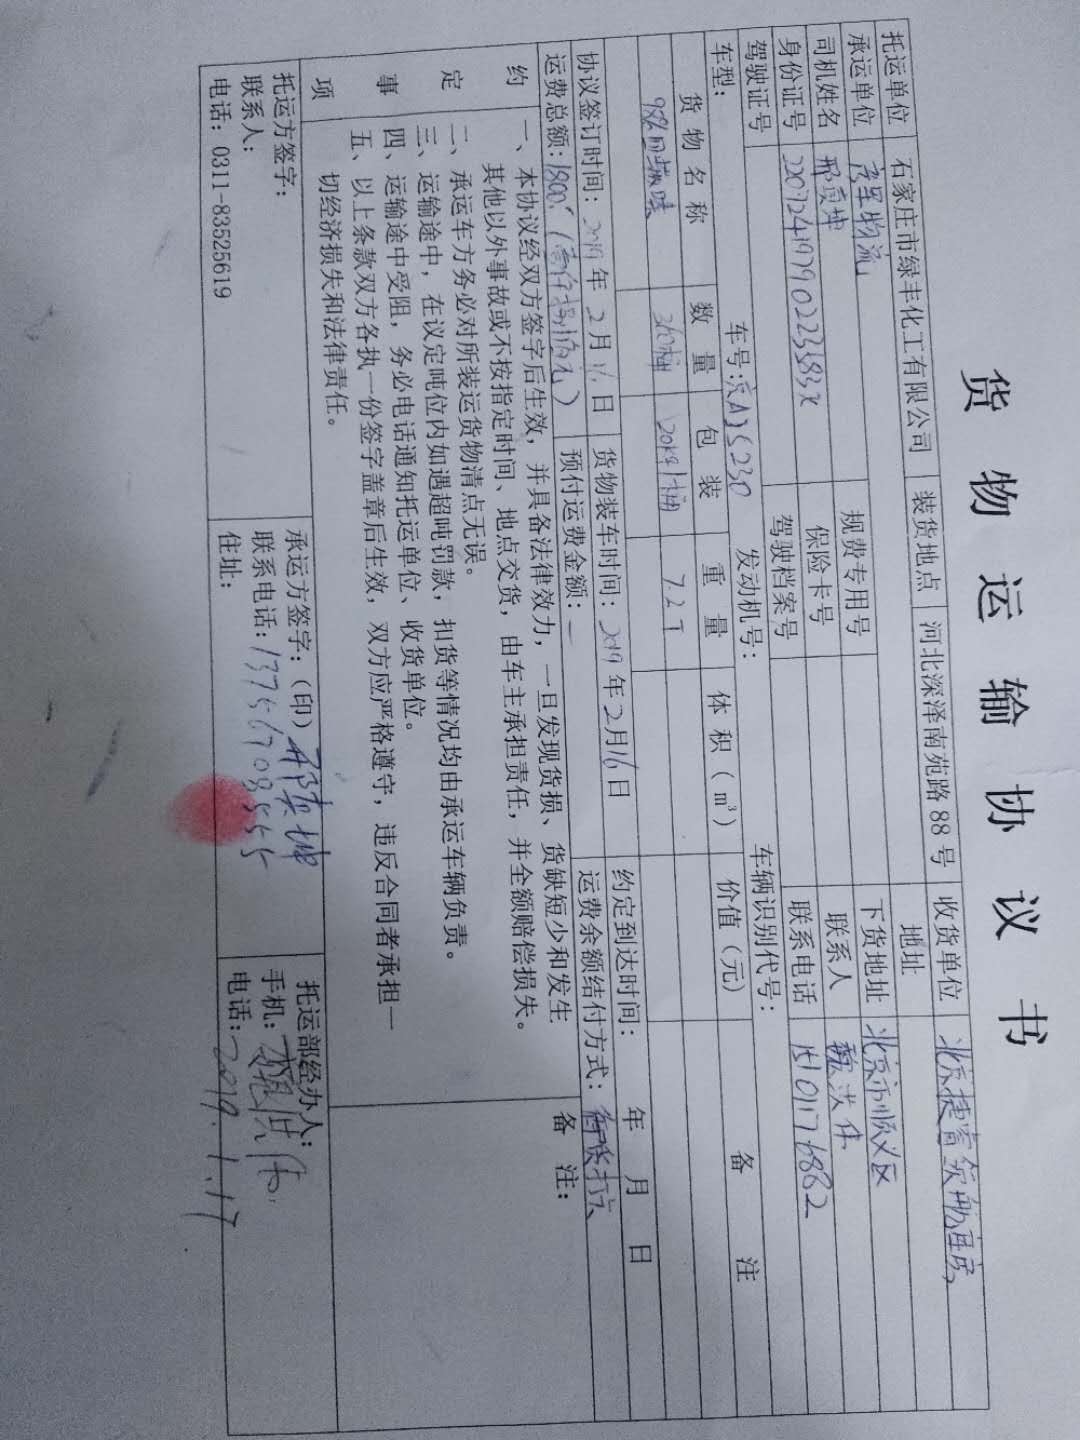 货物运输协议书
托运单位 石家庄市绿丰化工有限公司 装货地点 河北深泽南苑路88号 收货单位
承运单位 物流 地址
司机姓名 规费专用号 下货地址 北京市顺义区
身份证号 22072419790223583X 保险卡号 联系人 魏洪伟
驾驶证号 驾驶档案号 联系电话 15101176882
车型: 车号: 发动机号: 车辆识别代号:
货物名称 数量 包装 重量 体积(m³) 价值(元) 备注
98% 360桶 20kg/桶 7.2T
协议签订时间: 2019年2月16日 货物装车时间: 2019年2月16日 约定到达时间: 年 月 日
运费总额: 1800 预付运费金额: 运费余额结付方式:
约定事项
一、本协议经双方签字后生效,并具备法律效力,一旦发现货损、货缺短少和发生
其他以外事故或不按指定时间、地点交货,由车主承担责任,并全额赔偿损失。
二、承运车方务必对所装运货物清点无误。
三、运输途中,在议定吨位内如遇超吨罚款,扣货等情况均由承运车辆负责。
四、运输途中受阻,务必电话通知托运单位、收货单位。
五、以上条款双方各执一份签字盖章后生效,双方应严格遵守,违反合同者承担一
切经济损失和法律责任。
备注:
托运方签字: 承运方签字:(印) 托运部经办人:
联系人: 联系电话: 13756708555 手机:
电话: 0311-83525619 住址: 电话: 2019.1.17